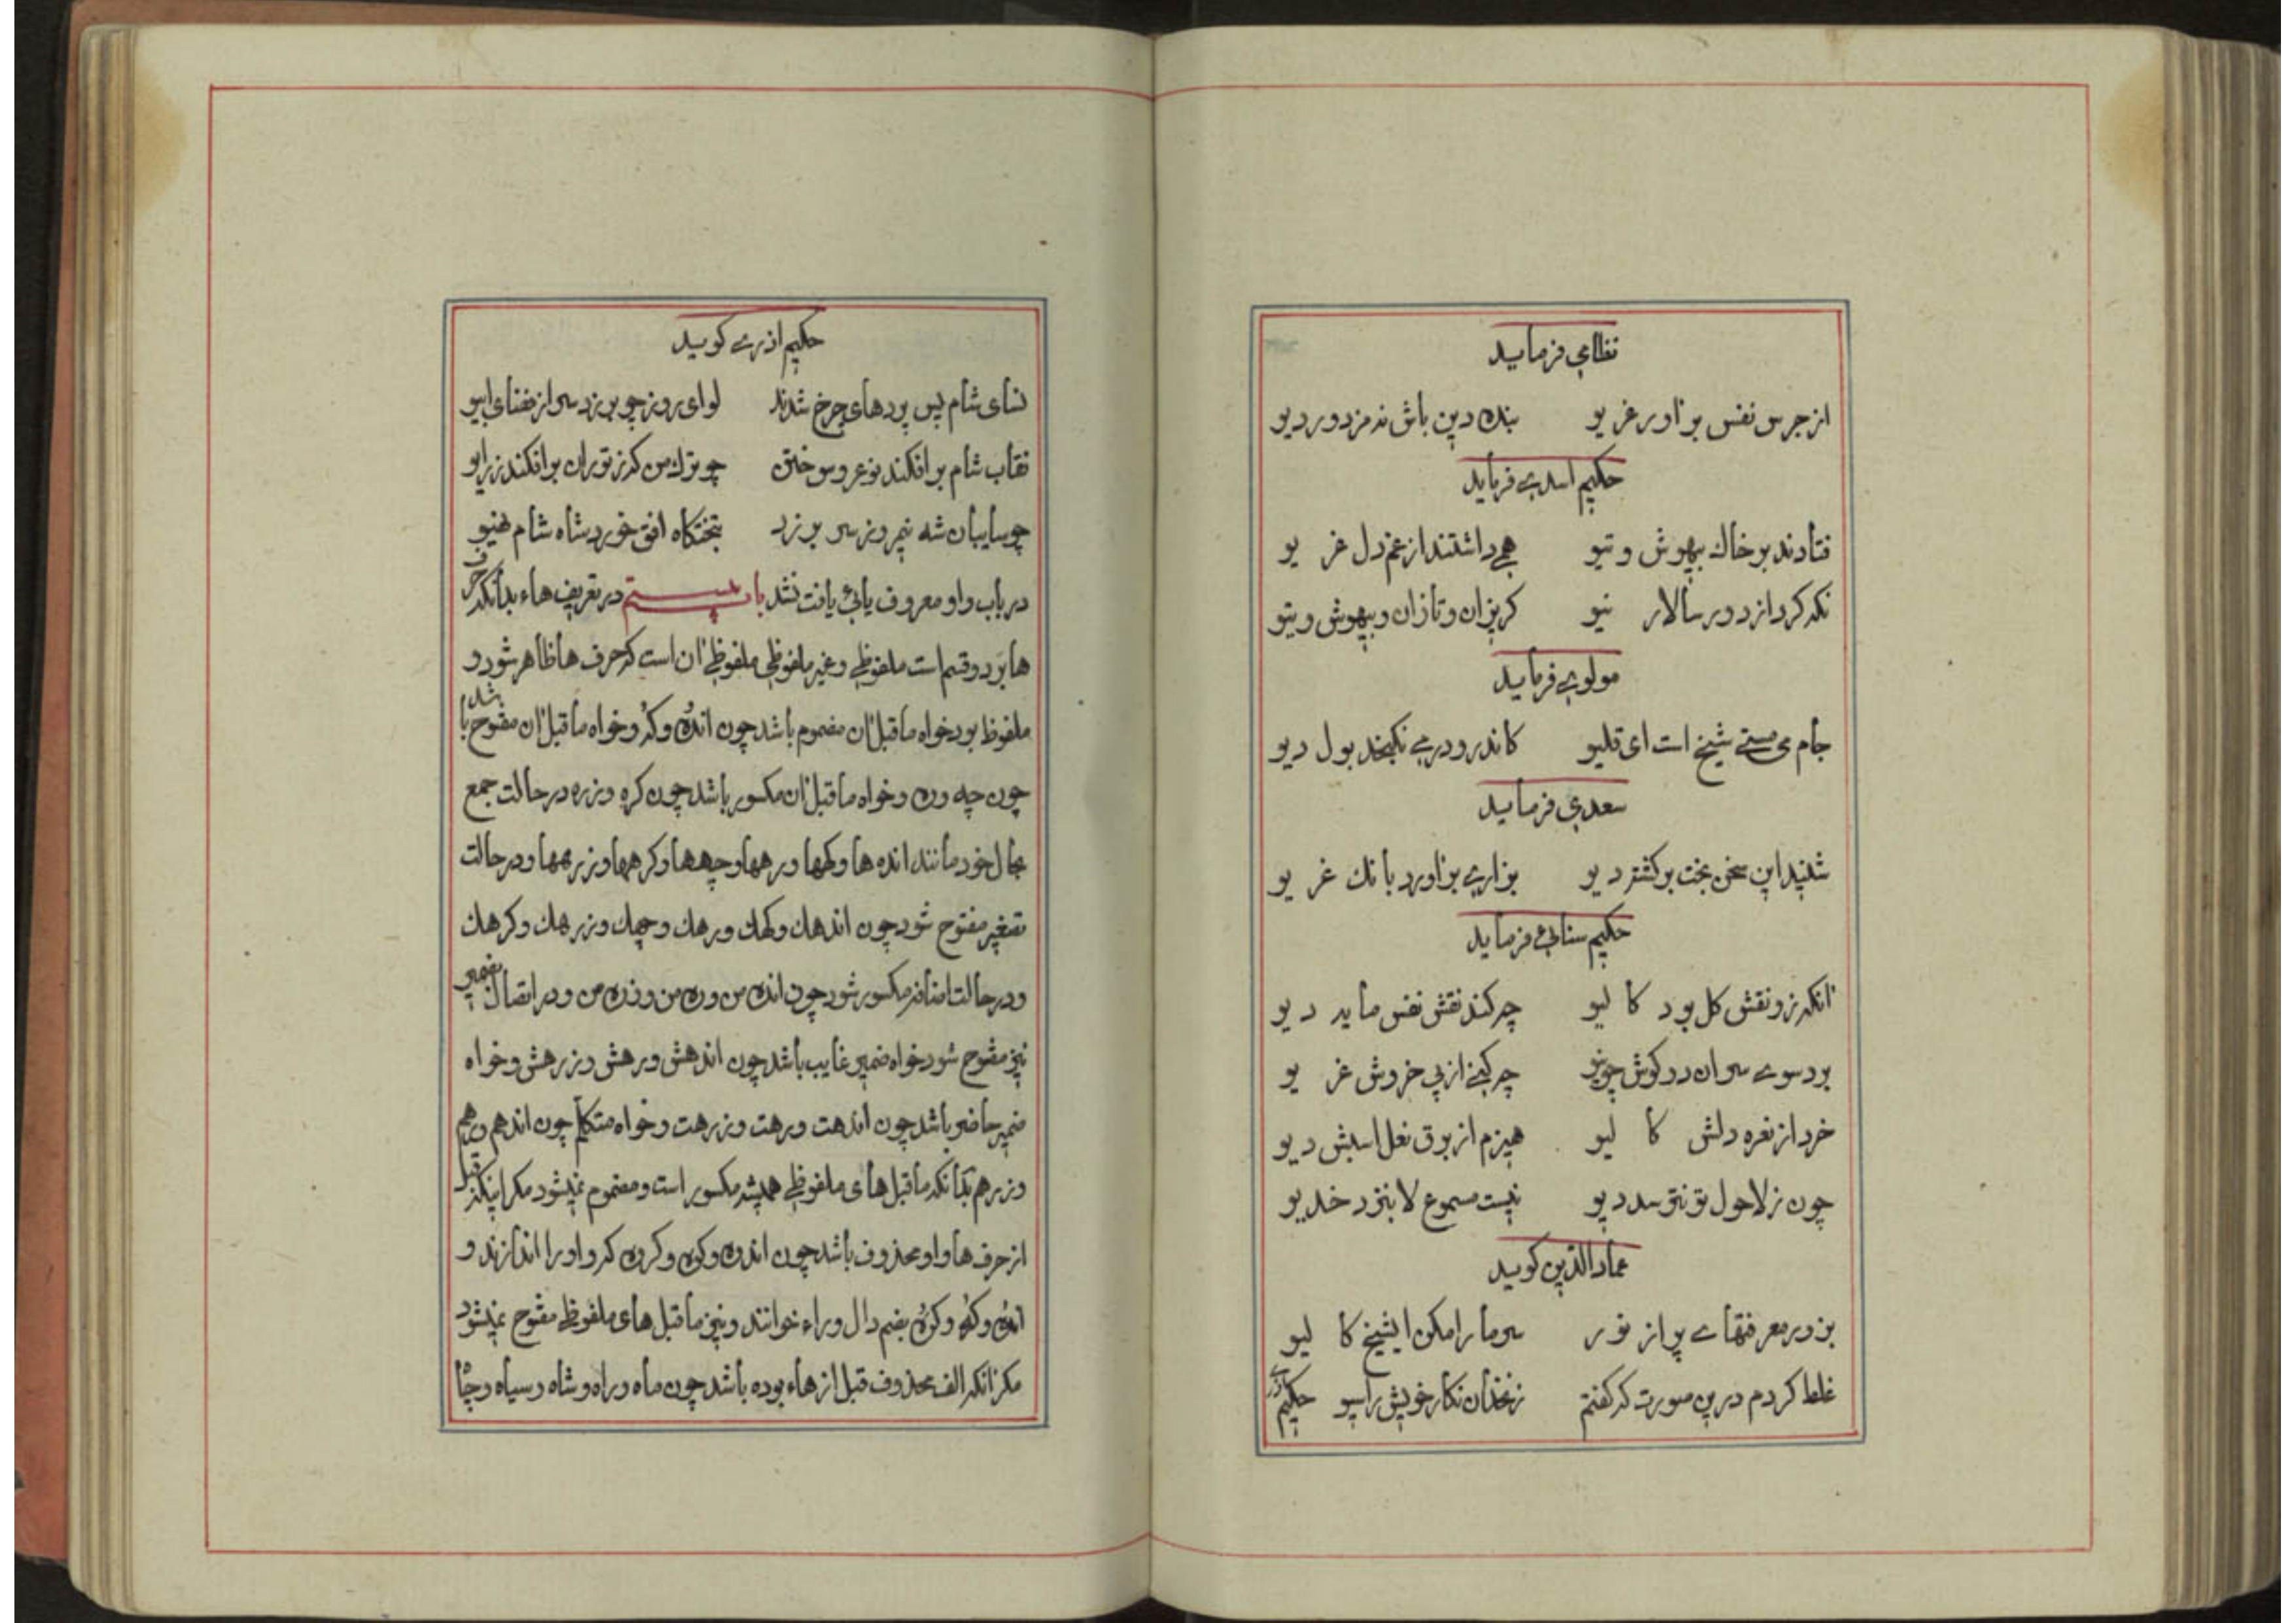 نظامی فرماید
از جرس نفس براور غریو بنده دین باش نه مزدور دیو
حکیم اسدی فرماید
فتادند بر خاك بیهوش و تیو همی داشتند از غم دل غریو
نکه کرد از دور سالار نیو کریزان و تازان و بیهوش و تیو
مولوی فرماید
جام می مستی شیخ است ای قلیو کاندرو در می نکنجد بول دیو
سعدی فرماید
شنید این سخن بخت برکشته دیو بزاری براورد بانك غریو
حکیم سنائی فرماید
انکه زو نقش کل بود کالیو چه کند نقش نفس ماید دیو
برد سوی سران دو کوش چو نیو چه کنی از پی خروش غریو
خرد از نعره دلش کالیو هیزم از برق نعل اسبش دیو
چون ز لاحول تو نترسد دیو نیست مسموع لابه نزد خدیو
عماد الدین کوید
بزور معرفتهای پر از نور سر ما را مکن ایشیخ کالیو
غلط کردم درین صورت که کفتم زنخدان نکار خویش را سیو حکیم
حکیم اذری کوید
نسای شام پس پردهای چرخ شدند لوای روز چو بر زد سر از فنای ابیو
نقاب شام برافکند نوعروس ختن چو ترك من که ز توران برافکند زرایو
چو سایبان شه نیمروز سر بر زد بتختکاه افق خورد شاه شام هنیو
در باب واو معروف یائی یافت نشد باب بیستم در تعریف هاء بدانکه حرف
ها بر دو قسم است ملفوظی و غیر ملفوظی ملفوظی ان است که حرف ها ظاهر شود و
ملفوظ بود خواه ماقبل ان مضموم باشد چون انده و که و خواه ماقبل ان مفتوح باشد
چون چه وره و خواه ماقبل ان مکسور باشد چون کره و زره در حالت جمع
بحال خود مانند انده ها و کهها و رهها و چهها و کرهها و زرهها و در حالت
تصغیر مفتوح شود چون اندهك و کهك و رهك و چهك و زرهك و کرهك
و در حالت اضافه مکسور شود چون انده من و ره من و زره من و در اتصال بضمیر
نیز مفتوح شود خواه ضمیر غایب باشد چون اندهش و رهش و زرهش و خواه
ضمیر حاضر باشد چون اندهت و رهت و زرهت و خواه متکلم چون اندهم و رهم
و زرهم بدانکه ماقبل های ملفوظی همیشه مکسور است و مضموم نمیشود مکر اینکه قبل
از حرف ها واو محذوف باشد چون اندوه و کوه و کروه که واو را اندازند و
انده و که و کره بضم دال و راء خوانند و نیز ماقبل های ملفوظی مفتوح نمیشود
مکر انکه الف محذوف قبل از هاء بوده باشد چون ماه و راه و شاه و سیاه و چاه